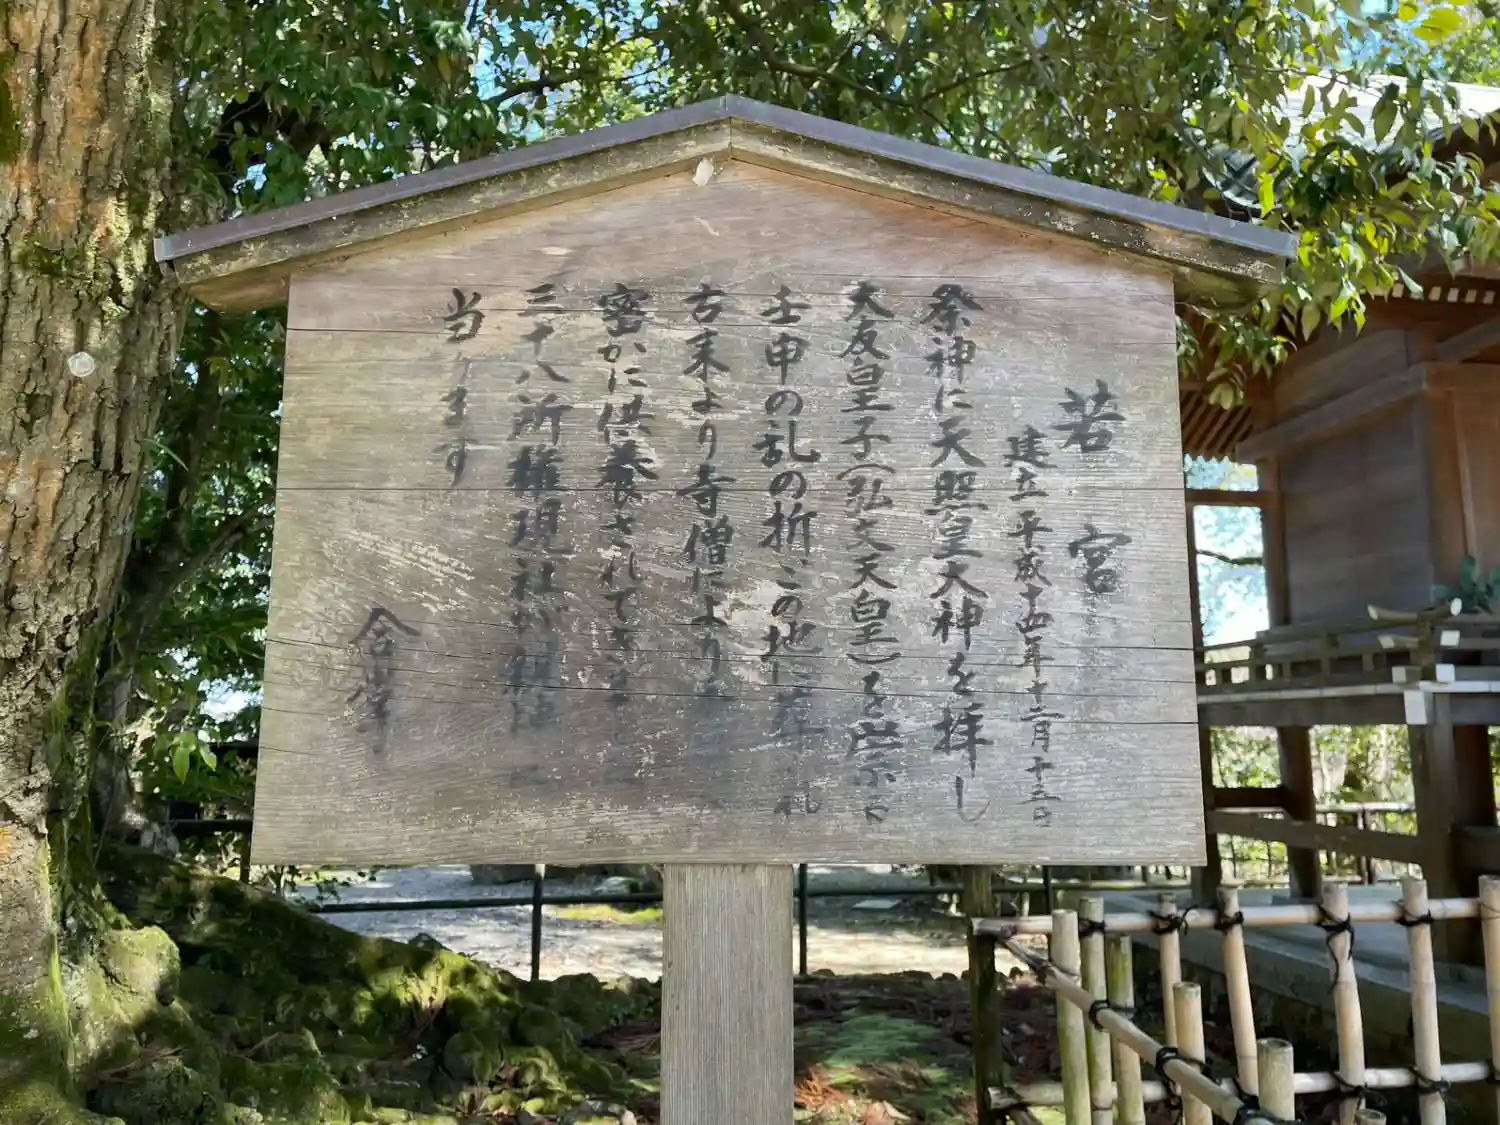 若宮
建立平成十四年十二月十三日
祭神に天照皇大神を拝し
大友皇子(弘文天皇)を祟
壬申の乱の折、この地に葬
古来より寺僧により
密かに供養されてきま
三十八所権現社が
当ります
合掌